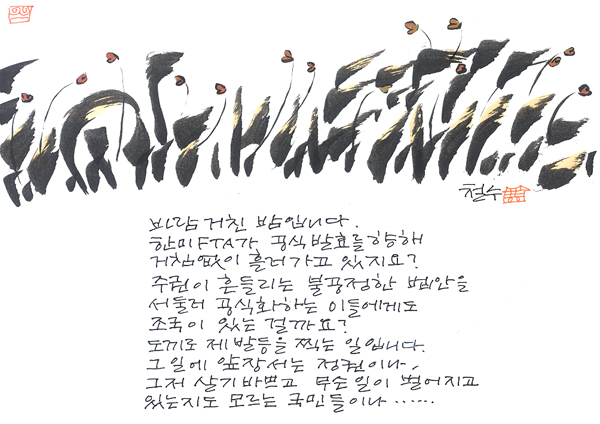 철수
바람 거친 밤입니다.
한미FTA가 공식발효를 향해
거침없이 흘러가고 있지요?
주권이 흔들리는 불공정한 법안을
서둘러 공식화하는 이들에게도
조국이 있는 걸까요?
도끼로 제 발등을 찍는 일입니다.
그 일에 앞장서는 정권이나,
그저 살기 바쁘고 무슨 일이 벌어지고
있는지도 모르는 국민들이나 ······